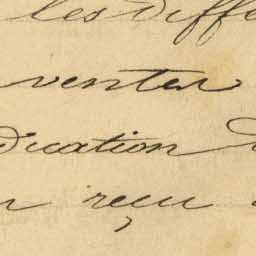 les diffé
ventes
dication
n reçu